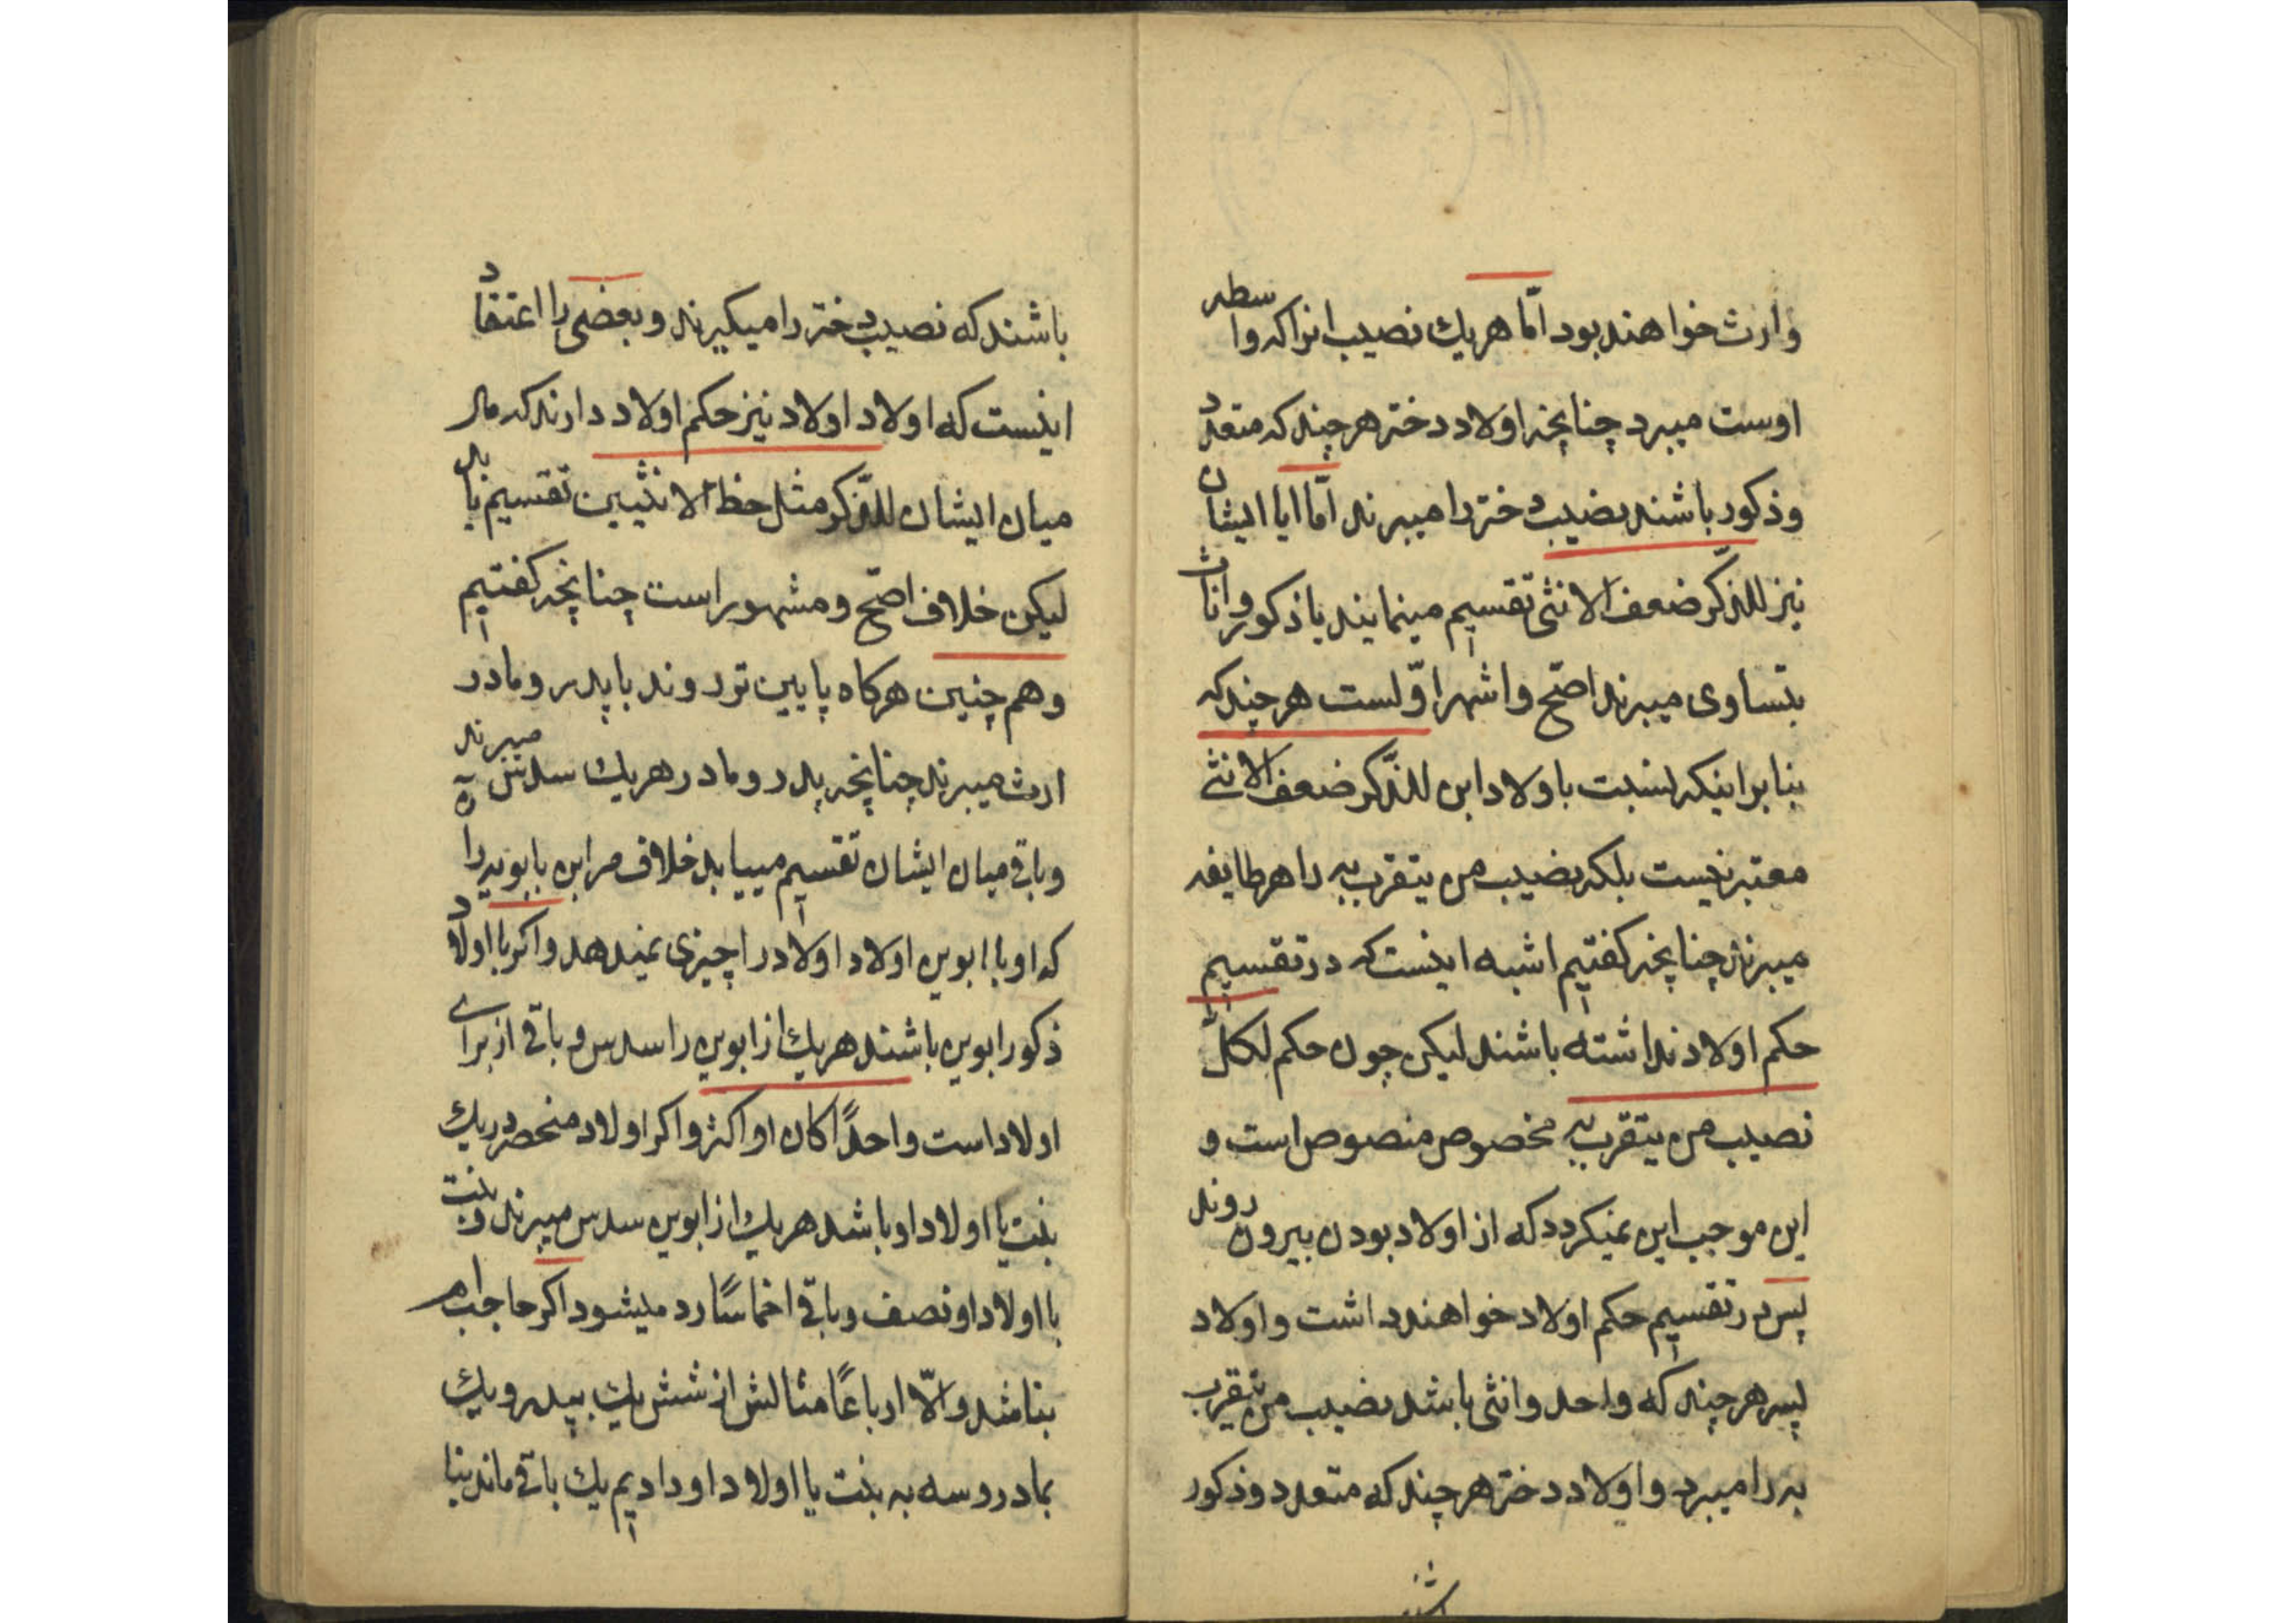 وارث خواهند بود امّا هریك نصیب انرا که واسطه
اوست میبرد چنانچه اولاد دختر هر چند که متعدد
وذکور باشند نصیب دختر را میبرند امّا ایا ایشان
نیز للذّکر ضعف الانثی تقسیم مینمایند یا ذکور واناث
بتساوی میبرند اصّح واشهر اوّلست هر چند که
بنا بر اینکه نسبت باولاد ابن للذّکر ضعف الانثی
معتبر نیست بلکه نصیب من یتقرب به را هر طایفه
میبرند چنانچه کفتیم اشبه اینست که در تقسیم
حکم اولاد نداشته باشند لیکن چون حکم لکلّ
نصیب من یتقرب به مخصوص منصوص است و
این موجب این نمیکردد که از اولاد بودن بیرون روند
پس در تقسیم حکم اولاد خواهند داشت واولاد
پسر هر چند که واحد وانثی باشد نصیب من یتقرب
به را میبرد واولاد دختر هر چند که متعدد وذکور
باشند که نصیب دختر را میکیرند وبعضی را اعتقاد
اینست که اولاد اولاد نیز حکم اولاد دارند که مال
میان ایشان للذّکر مثل حظ الانثیین تقسیم یابد
لیکن خلاف اصّح ومشهور است چنانچه کفتیم
وهم چنین هرکاه پایین تر روند با پدر ومادر
ارث میبرند چنانچه پدر ومادر هریك سدس میبرند
وباقی میان ایشان تقسیم مییابد خلاف مر ابن بابویه را
که او با ابوین اولاد اولاد را چیزی نمیدهد واکر با اولاد
ذکور ابوین باشند هریك از ابوین را سدس و باقی از برای
اولاد است واحدًا کان او اکثر واکر اولاد منحصر در یك
بنت یا اولاد او باشد هریك از ابوین سدس میبرند وبنت
با اولاد او نصف وباقی اخماسًا رد میشود اکر حاجب ام
بناشد والّا ارباعًا مثالش از شش یك بپدر ویك
بمادر وسه به بنت یا اولاد او دادیم یك باقی ماند بنا